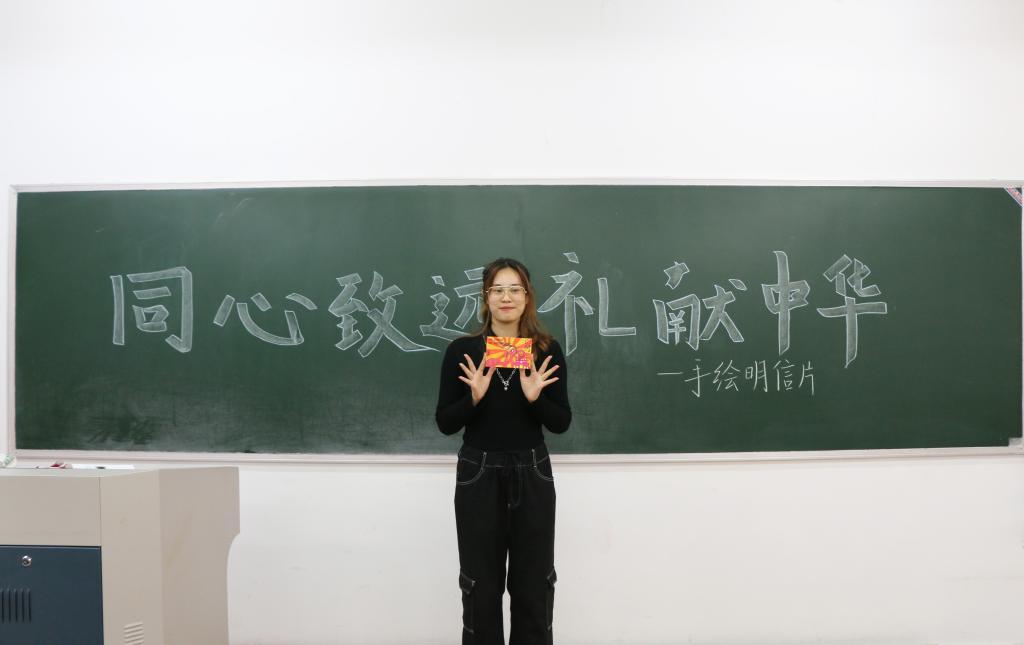 同心致远礼献中华
—手绘明信片